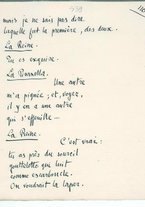 539
mais je ne sais pas dire
laquelle fut la première, des deux.
La Reine.
Tu es exquise.
La
Une autre
m'a piquée ; et, voyez,
il y en a une autre
qui s'effeuille —
La Reine.
C'est vrai :
tu as près du sourcil
gouttelette qui luit
comme escarboucle.
On voudrait la laper.